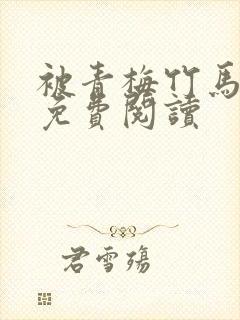 被青梅竹馬
免費閱讀
君雪殤